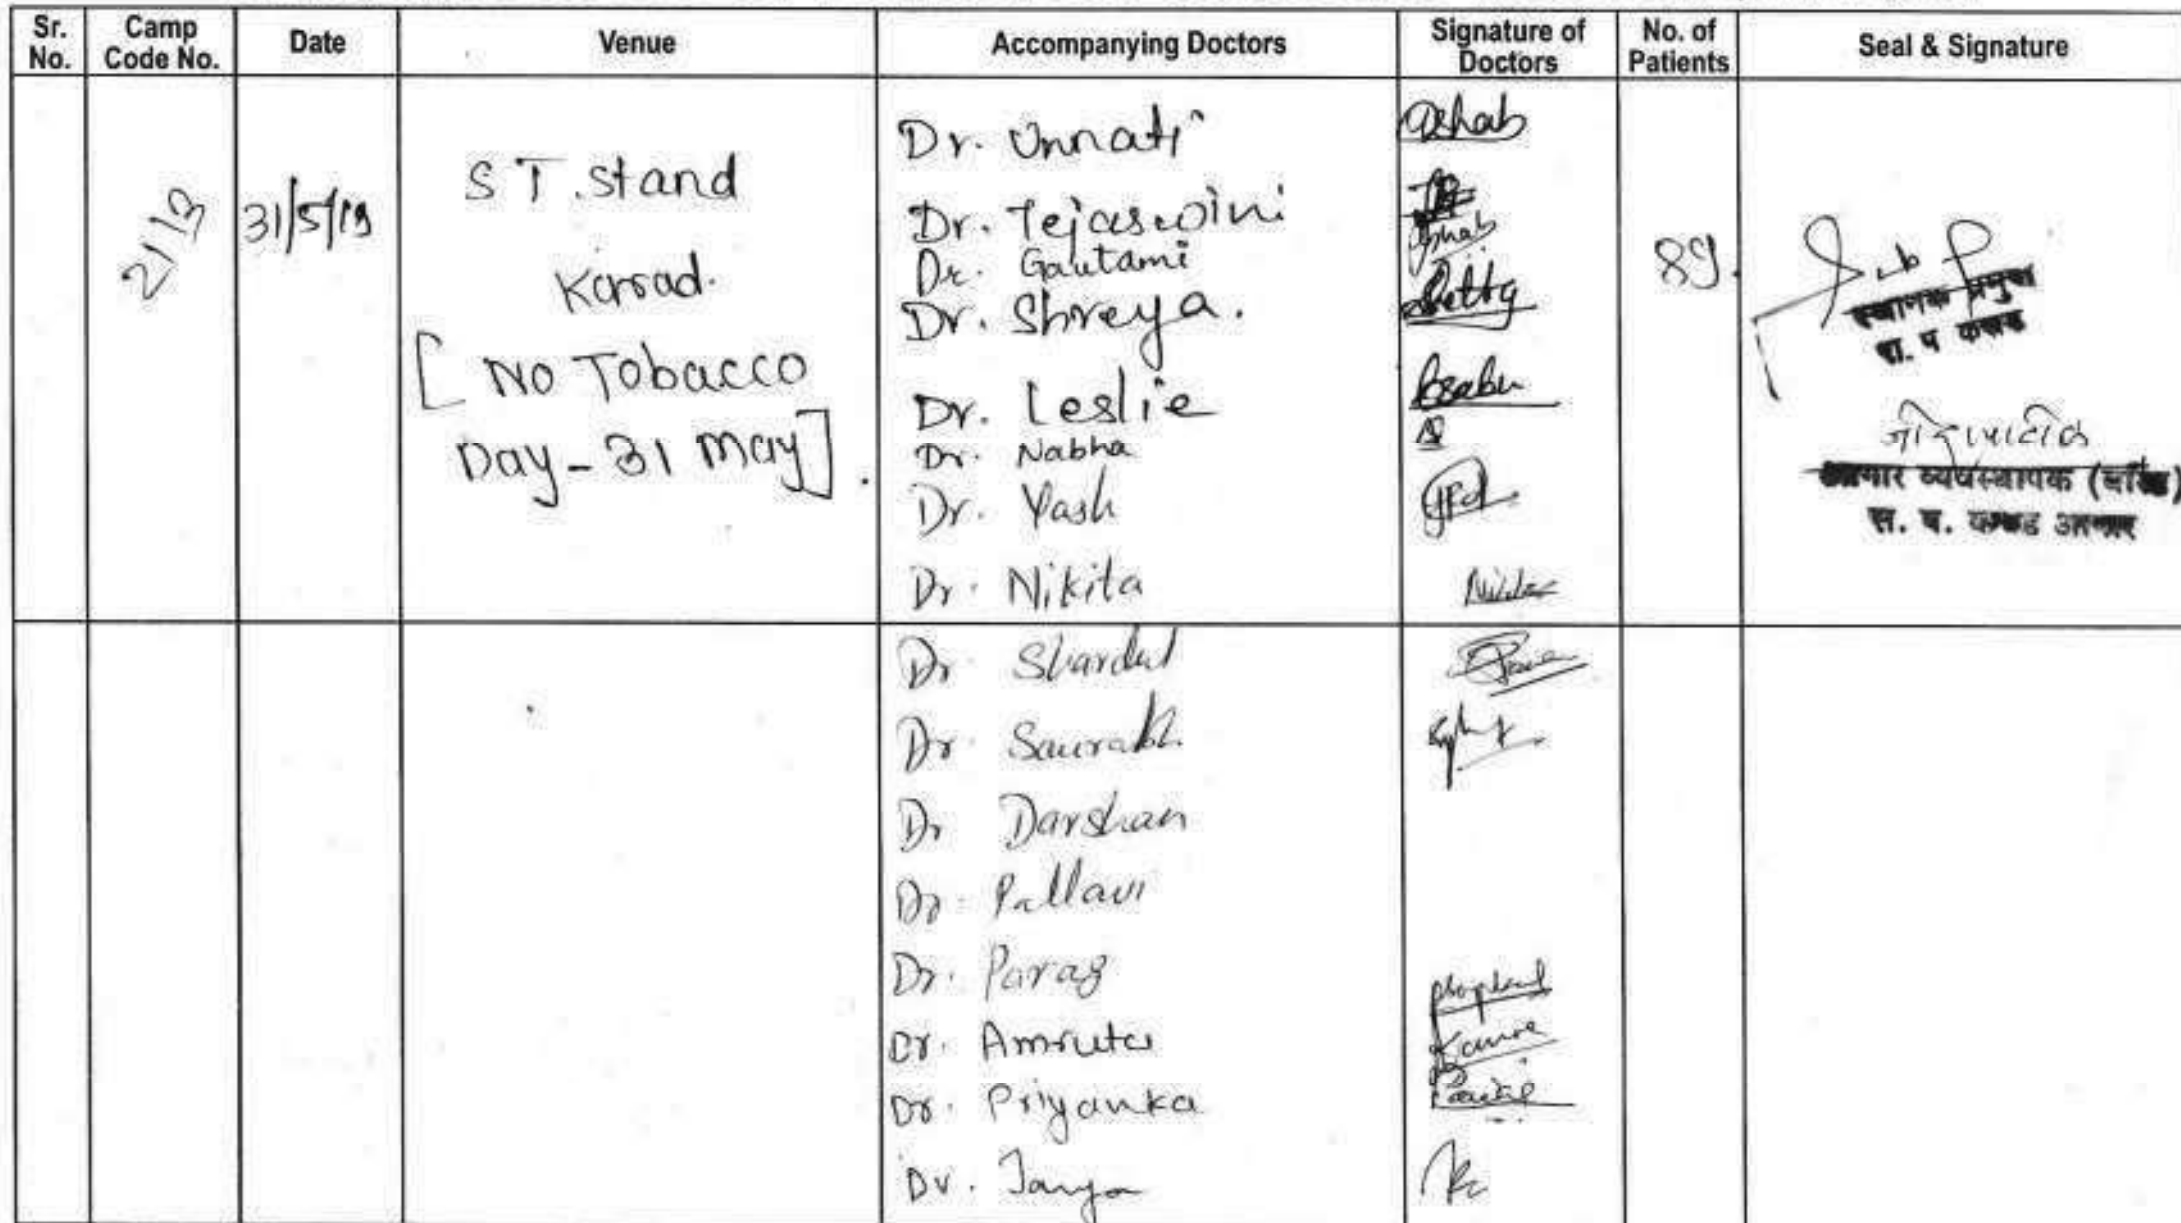 Sr. No.
Camp Code No.
Date
Venue
Accompanying Doctors
Signature of Doctors
No. of Patients
Seal & Signature
2113
31/5/19
S T. stand
Karad.
[ No Tobacco
Day - 31 May ].
Dr. Unnati
Dr. Tejaswini
Dr. Gautami
Dr. Shreya.
Dr. Leslie
Dr. Nabha
Dr. Yash
Dr. Nikita
89.
स्थानक प्रमुख
रा. प कराड
आगार व्यवस्थापक
Dr Shardul
Dr. Saurabh
Dr Darshan
Dr. Pallavi
Dr. Parag
Dr. Amruta
Dr. Priyanka
Dr.